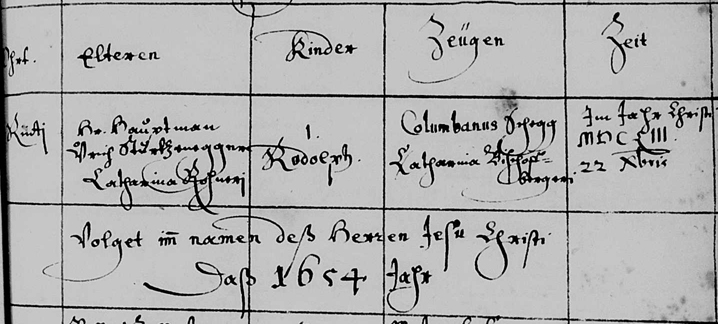 Ohrt. Elteren Kinder Zeügen Zeit
Rüüti Hr. Hauptman
Vrich Stürtzenegger
Catharina Rohneri
1.
Rodolph.
Columbanus Schegg
Catharina Bischoff-
bergeri
Im Jahr Christi
MDCLIII.
22 Xbris
Volget im namen deß Herren Jesu Christi
Daß 1654 Jahr